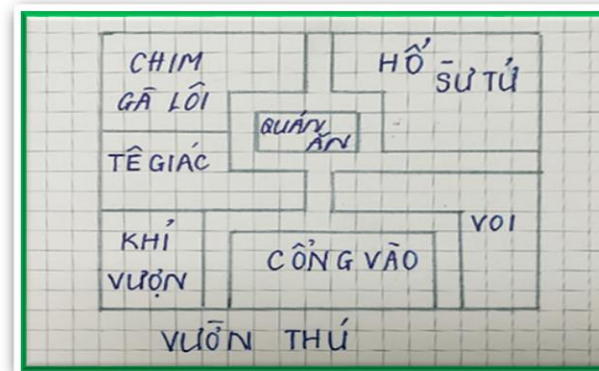 CHIM
GÃ LÔI
HỔ
SƯ TỬ
QUÁN
ĂN
TÊ GIÁC
KHỈ
VƯỢN
CỔNG VÀO
VOI
VƯỜN THÚ